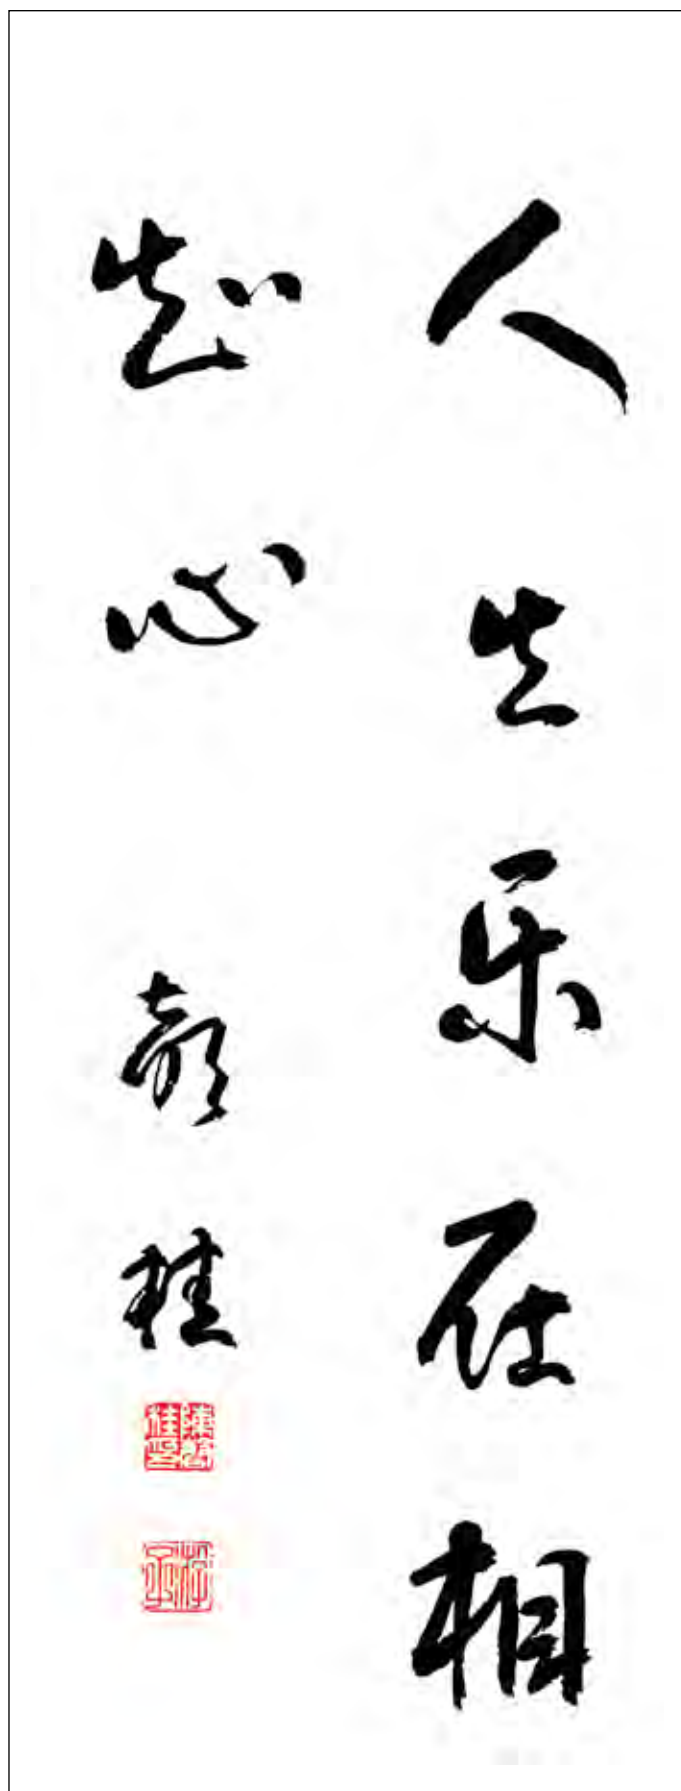 人生乐在相
知心
桂